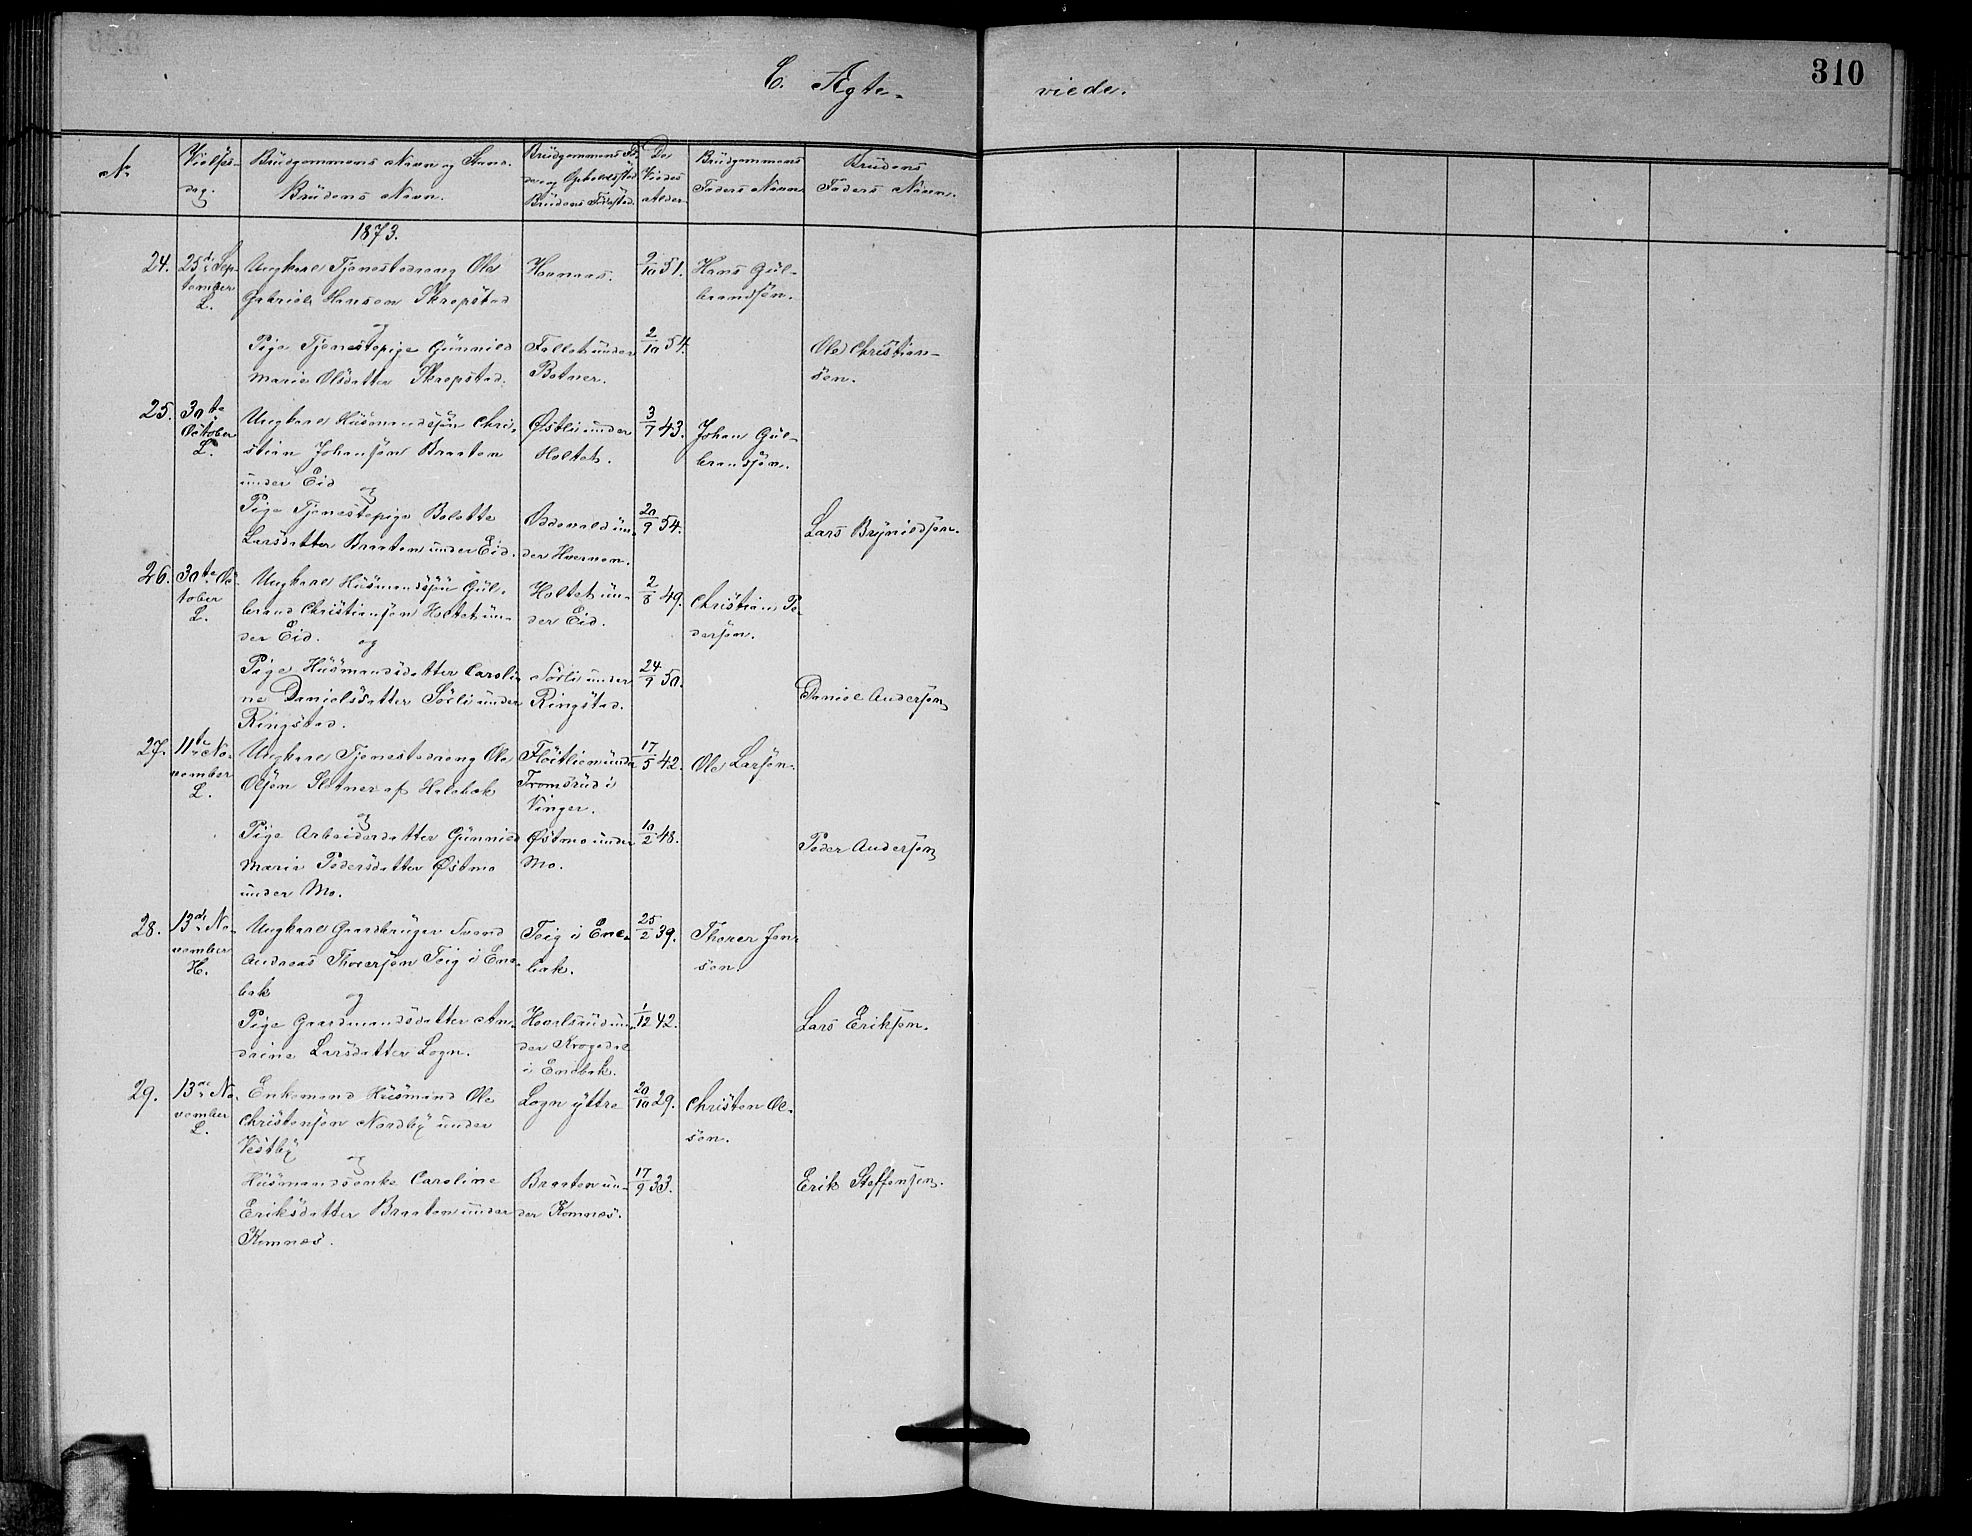 310
C. Ægte- viede.
No
Vielses-
dag.
Brudgommens Navn og
Brudens Navn.
Brudgommens Fø-
de og Opholdssted
Brudens Fødested.
De
Viedes
Alder
Brudgommens
Faders Navn
Brudens
Faders Navn.
1873.
24. 25de Sep-
tember
L.
Ungkarl Tjenestedreng Ole
Gabriel Hansen Skrepstad
Hannaas.
9/10 51.
Hans Gul-
brandsen.
og
Pige Tjenestepige Gunnild
Marie Olsdatter Skrepstad.
Fallet under
Botner.
2/10 54.
Ole Christian-
sen.
25. 30te
October
L.
Ungkarl Husmandssøn Chri-
stian Johansøn Braaten
under Eid
Østli under
Holtet.
3/7 43.
Johan Gul-
brandsøn.
og
Pige Tjenestepige Bolette
Larsdatter Braaten under Eid.
Ødevald un-
der Hvernen.
20/9 54.
Lars Brynildsøn.
26. 30te Oc-
tober
L.
Ungkarl Husmandssøn Gul-
brand Christiansøn Holtet un-
der Eid.
Holtet un-
der Eid.
2/8 49.
Christian Pe-
dersøn.
og
Pige Husmandsdatter Caroli-
ne Danielsdatter Sørli under
Ringstad.
Sørli under
Ringstad.
24/9 50.
Daniel Andersøn
27. 11te No-
vember
L.
Ungkarl Tjenestedreng Ole
Olsøn Sletner af Halebæk
Fløitlien under
Tromsrud i
Vinger.
17/5 42.
Ole Larsøn.
og
Pige Arbeiderdatter Gunnild
Marie Pedersdatter Østmo
under Mo.
Østmo under
Mo.
10/2 48.
Peder Andersøn
28. 13de No-
vember
H.
Ungkarl Gaardbruger Svend
Andreas Thorersøn Teig i Ene-
bak
Teig i Ene-
bak.
25/2 39.
Thorer Jen-
sen.
og
Pige Gaardmandsdatter An-
drine Larsdatter Logn.
Hvalsrud un-
der Krogsdal
i Enebak.
1/12 42.
Lars Eriksøn.
29. 13de No-
vember
L.
Enkemand Husmand Ole
Christensøn Nordby under
Vestby
Logn yttre
20/10 29.
Christen Ol-
sen.
og
Husmandsenke Caroline
Eriksdatter Braaten under
Komnæs.
Braaten un-
der Komnæs.
17/9 33.
Erik Steffensøn.